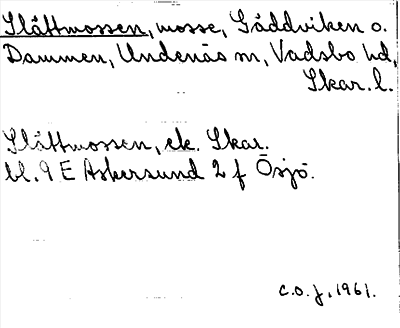 Slåttmossen, mosse, Gäddviken o.
Dammen, Undenäs sn, Vadsbo hd,
Skar. l.
Slåttmossen, ek. Skar.
bl. 9 E Askersund 2 f Ösjö.
C.O.J, 1961.